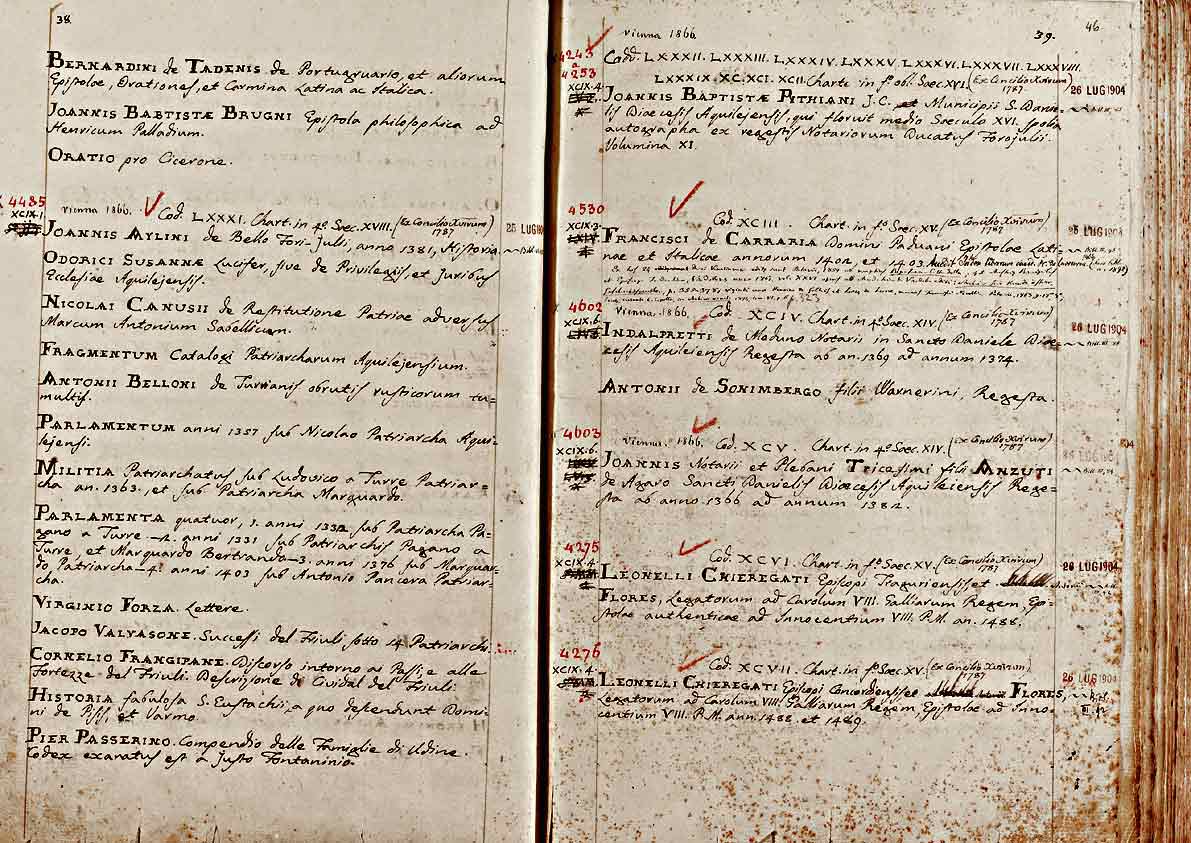 38.
BERNARDINI de TADENIS de Portugruario, et aliorum
Epistolae, Orationes, et Carmina Latina ac Italica.
JOANNIS BABTISTÆ BRUGNI Epistola philosophica ad
Henricum Palladium.
ORATIO pro Cicerone.
4485
XCIX.1
vienna 1866. Cod. LXXXI. Chart. in 4º Saec. XVIII. (Ex Concilio Xvirum)
1787
JOANNIS AYLINI de Bello Fori-Julii, anne 1381, Historia
ODORICI SUSANNÆ Lucifer, sive de Privilegiis, et Juribus
Ecclesiae Aquilejensis.
NICOLAI CANUSII de Restitutione Patriae adversus
Marcum Antonium Sabellicum.
FRAGMENTUM Catalogi Patriarcharum Aquilejensium.
ANTONII BELLONI de Turrianis obrutis rusticorum tu=
multis.
PARLAMENTUM anni 1357 sub Nicolao Patriarcha Aqui-
lejensi.
MILITIA Patriarchatus sub Ludovico a Turre Patriar=
cha an. 1363., et sub Patriarcha Marquardo.
PARLAMENTA quatuor, 1. anni 1332 sub Patriarcha Pa-
gano a Turre - 2. anni 1331 sub Patriarchis Pagano a
Turre, et Marquardo Bertrando - 3. anni 1376 sub Marquar-
do Patriarcha - 4. anni 1403 sub Antonio Pancera Patriar-
cha.
VIRGINIO FORZA. Lettere.
JACOPO VALVASONE. Successi del Friuli sotto 14 Patriarchi
CORNELIO FRANGIPANE. Discorso intorno ai Passi, e alle
Fortezze del Friuli. Descrizione di Cividal del Friuli
HISTORIA fabulosa S. Eustachii, a quo descendunt Domi=
ni de Pers, et Varmo.
PIER PASSERINO. Compendio delle Famiglie di Udine.
Codex exaratus est a Justo Fontanino.
25 LUG
46
39.
vienna 1866.
4243
a
4253
XCIX.4
Codd. LXXXII. LXXXIII. LXXXIV. LXXXV. LXXXVI. LXXXVII. LXXXVIII.
LXXXIX. XC. XCI. XCII. Charte in fº obl. Saec. XVI. (Ex Concilio Xvirum)
1787
26 LUG 1904
JOANNIS BAPTISTÆ PITHIANI J.C. et Municipis S. Danie=
lis Diaecesis Aquilejensis, qui floruit medio Saeculo XVI. spolia
autographa ex regestis Notariorum Ducatus Forojulii.
Volumina XI.
4530
XCIX.3
Cod. XCIII. Chart. in fº Saec. XV. (Ex Concilio Xvirum)
1787
25 LUG 1904
FRANCISCI de CARRARIA Domini Paduani Epistolae Lati-
nae et Italicae annorum 1402, et 1403.
4602
XCIX.6
vienna 1866. Cod. XCIV. Chart. in 4º Saec. XIV. (Ex Concilio Xvirum)
1787
26 LUG 1904
INDALPRETTI de Meduno Notarii in Sancto Daniele Diae=
cesis Aquileiensis Regesta ab an. 1369 ad annum 1374.
ANTONII de SONIMBERGO filii Warnerini, Regesta.
4603
XCIX.6
vienna 1866. Cod. XCV. Chart. in 4º Saec. XIV. (Ex Concilio Xvirum)
1787
26 LUG
JOANNIS Notarii et Plebani TRICESIMI filii ANZUTI
de Agaro Sancti Danielis Diaecesis Aquileiensis Rege=
sta ab anno 1366 ad annum 1382.
4275
XCIX.4
Cod. XCVI. Chart. in fº Saec. XV. (Ex Concilio Xvirum)
1787
26 LUG 1904
LEONELLI CHIEREGATI Episcopi Traguriensis et
FLORES, Legatorum ad Carolum VIII. Galliarum Regem, Epi=
stolae authenticae ad Innocentium VIII. P.M. an. 1488.
4276
XCIX.4
Cod. XCVII. Chart. in fº Saec. XV. (Ex Concilio Xvirum)
1787
26 LUG 1904
LEONELLI CHIEREGATI Episcopi Concordiensis et FLORES,
Legatorum ad Carolum VIII. Galliarum Regem, Epistolae ad Inno=
centium VIII. P.M. ann. 1488. et 1489.